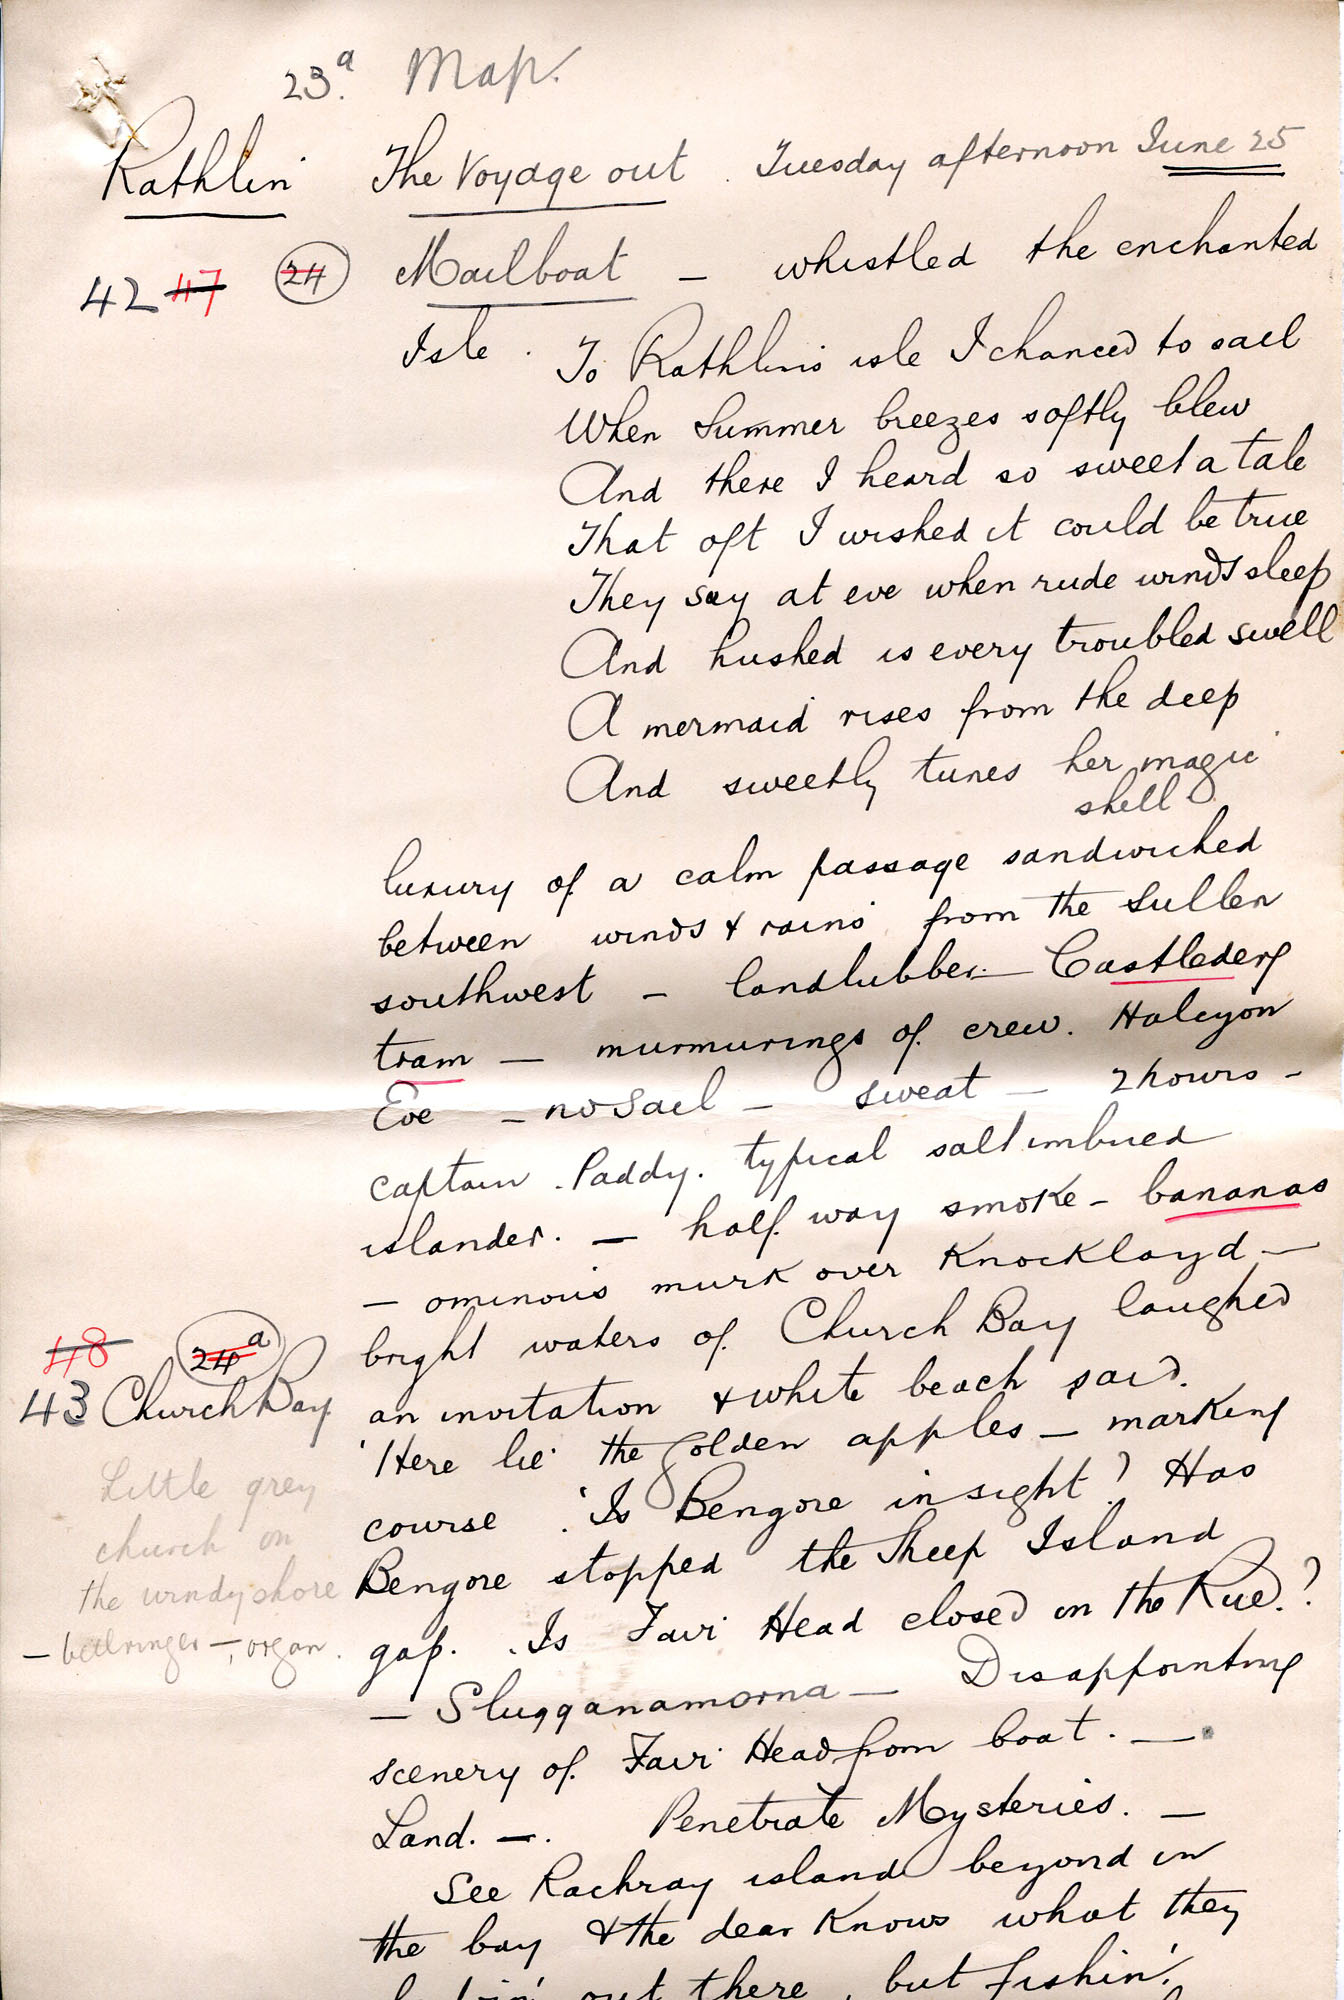 23a. Map.
Rathlin The Voyage out. Tuesday afternoon June 25
42 47 24 Mailboat — whistled the enchanted
Isle. To Rathlin's isle I chanced to sail
When Summer breezes softly blew
And there I heard so sweet a tale
That oft I wished it could be true
They say at eve when rude winds sleep
And hushed is every troubled swell
A mermaid rises from the deep
And sweetly tunes her magic
shell
luxury of a calm passage sandwiched
between winds & rains from the sullen
southwest — landlubber — Castlederg
tram — murmurings of crew. Halcyon
Eve — no sail — sweat — 2 hours —
captain. Paddy. typical salt imbued
islander. — half way smoke — bananas
— ominous murk over Knocklayd —
bright waters of Church Bay laughed
48 24a
43 Church Bay
an invitation & white beach said.
'Here lie the golden apples — marking
course. 'Is Bengore in sight? Has
Bengore stopped the Sheep Island
gap. Is Fair Head closed on the Rue.?
— Slugganamorna — Disappointing
scenery of Fair Head from boat. —
Land. —. Penetrate Mysteries. —
See Rachray island beyond in
the bay & the dear knows what they
out there, but fishin'.
Little grey
church on
the windy shore
— bellringer —, organ.